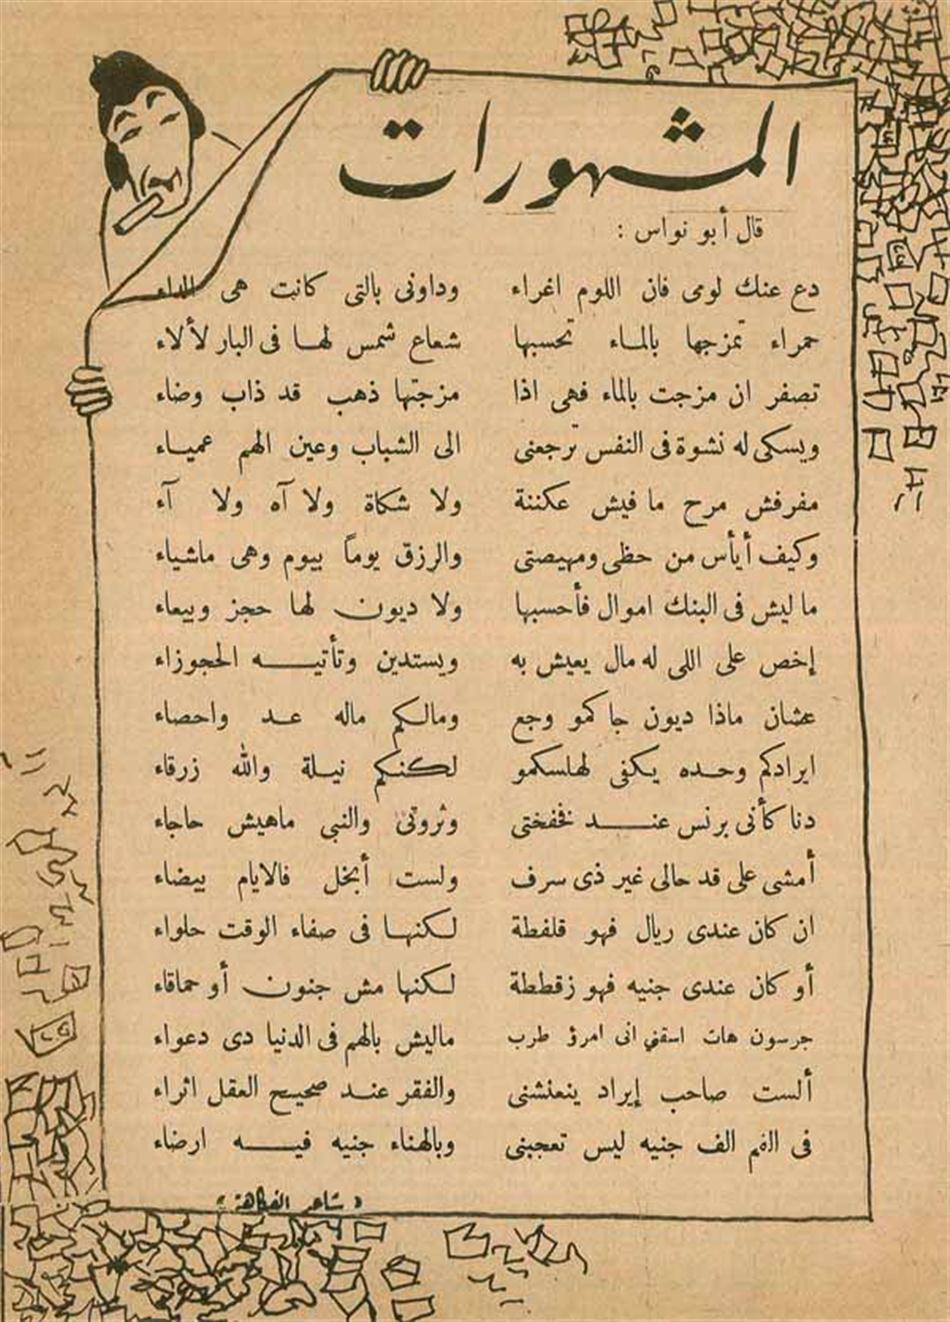 المشهورات
قال أبو نواس :
دع عنك لومى فان اللوم اغراء وداونى بالتى كانت هى الداء
حمراء تمزجها بالماء تحسبها شعاع شمس لها فى البار لألاء
تصفر ان مزجت بالماء فهى اذا مزجتها ذهب قد ذاب وضاء
ويسكى له نشوة فى النفس ترجعنى الى الشباب وعين الهم عمياء
مفرفش مرح ما فيش عكننة ولا شكاة ولا آه ولا آء
وكيف أيأس من حظى ومهيصتى والرزق يوماً بيوم وهى ماشياء
ماليش فى البنك اموال فأحسبها ولا ديون لها حجز وبيعاء
إخص على اللى له مال يعيش به ويستدين وتأتيه الحجوزاء
عشان ماذا ديون جاكمو وجع ومالكم ماله عد واحصاء
ايرادكم وحده يكفى لهلسكمو لكنكم نيلة والله زرقاء
دنا كأنى برنس عند فخفختى وثروتى والنبى ماهيش حاجاء
أمشى على قد حالى غير ذى سرف ولست أبخل فالايام بيضاء
ان كان عندى ريال فهو قلفطة لكنها فى صفاء الوقت حلواء
أو كان عندى جنيه فهو زقططة لكنها مش جنون أو حماقاء
جرسون هات اسقني انى امرؤ طرب ماليش بالهم فى الدنيا دى دعواء
ألست صاحب إيراد ينعنشنى والفقر عند صحيح العقل اثراء
فى الهم الف جنيه ليس تعجبنى وبالهناء جنيه فيه ارضاء
« شاعر الفكاهة »